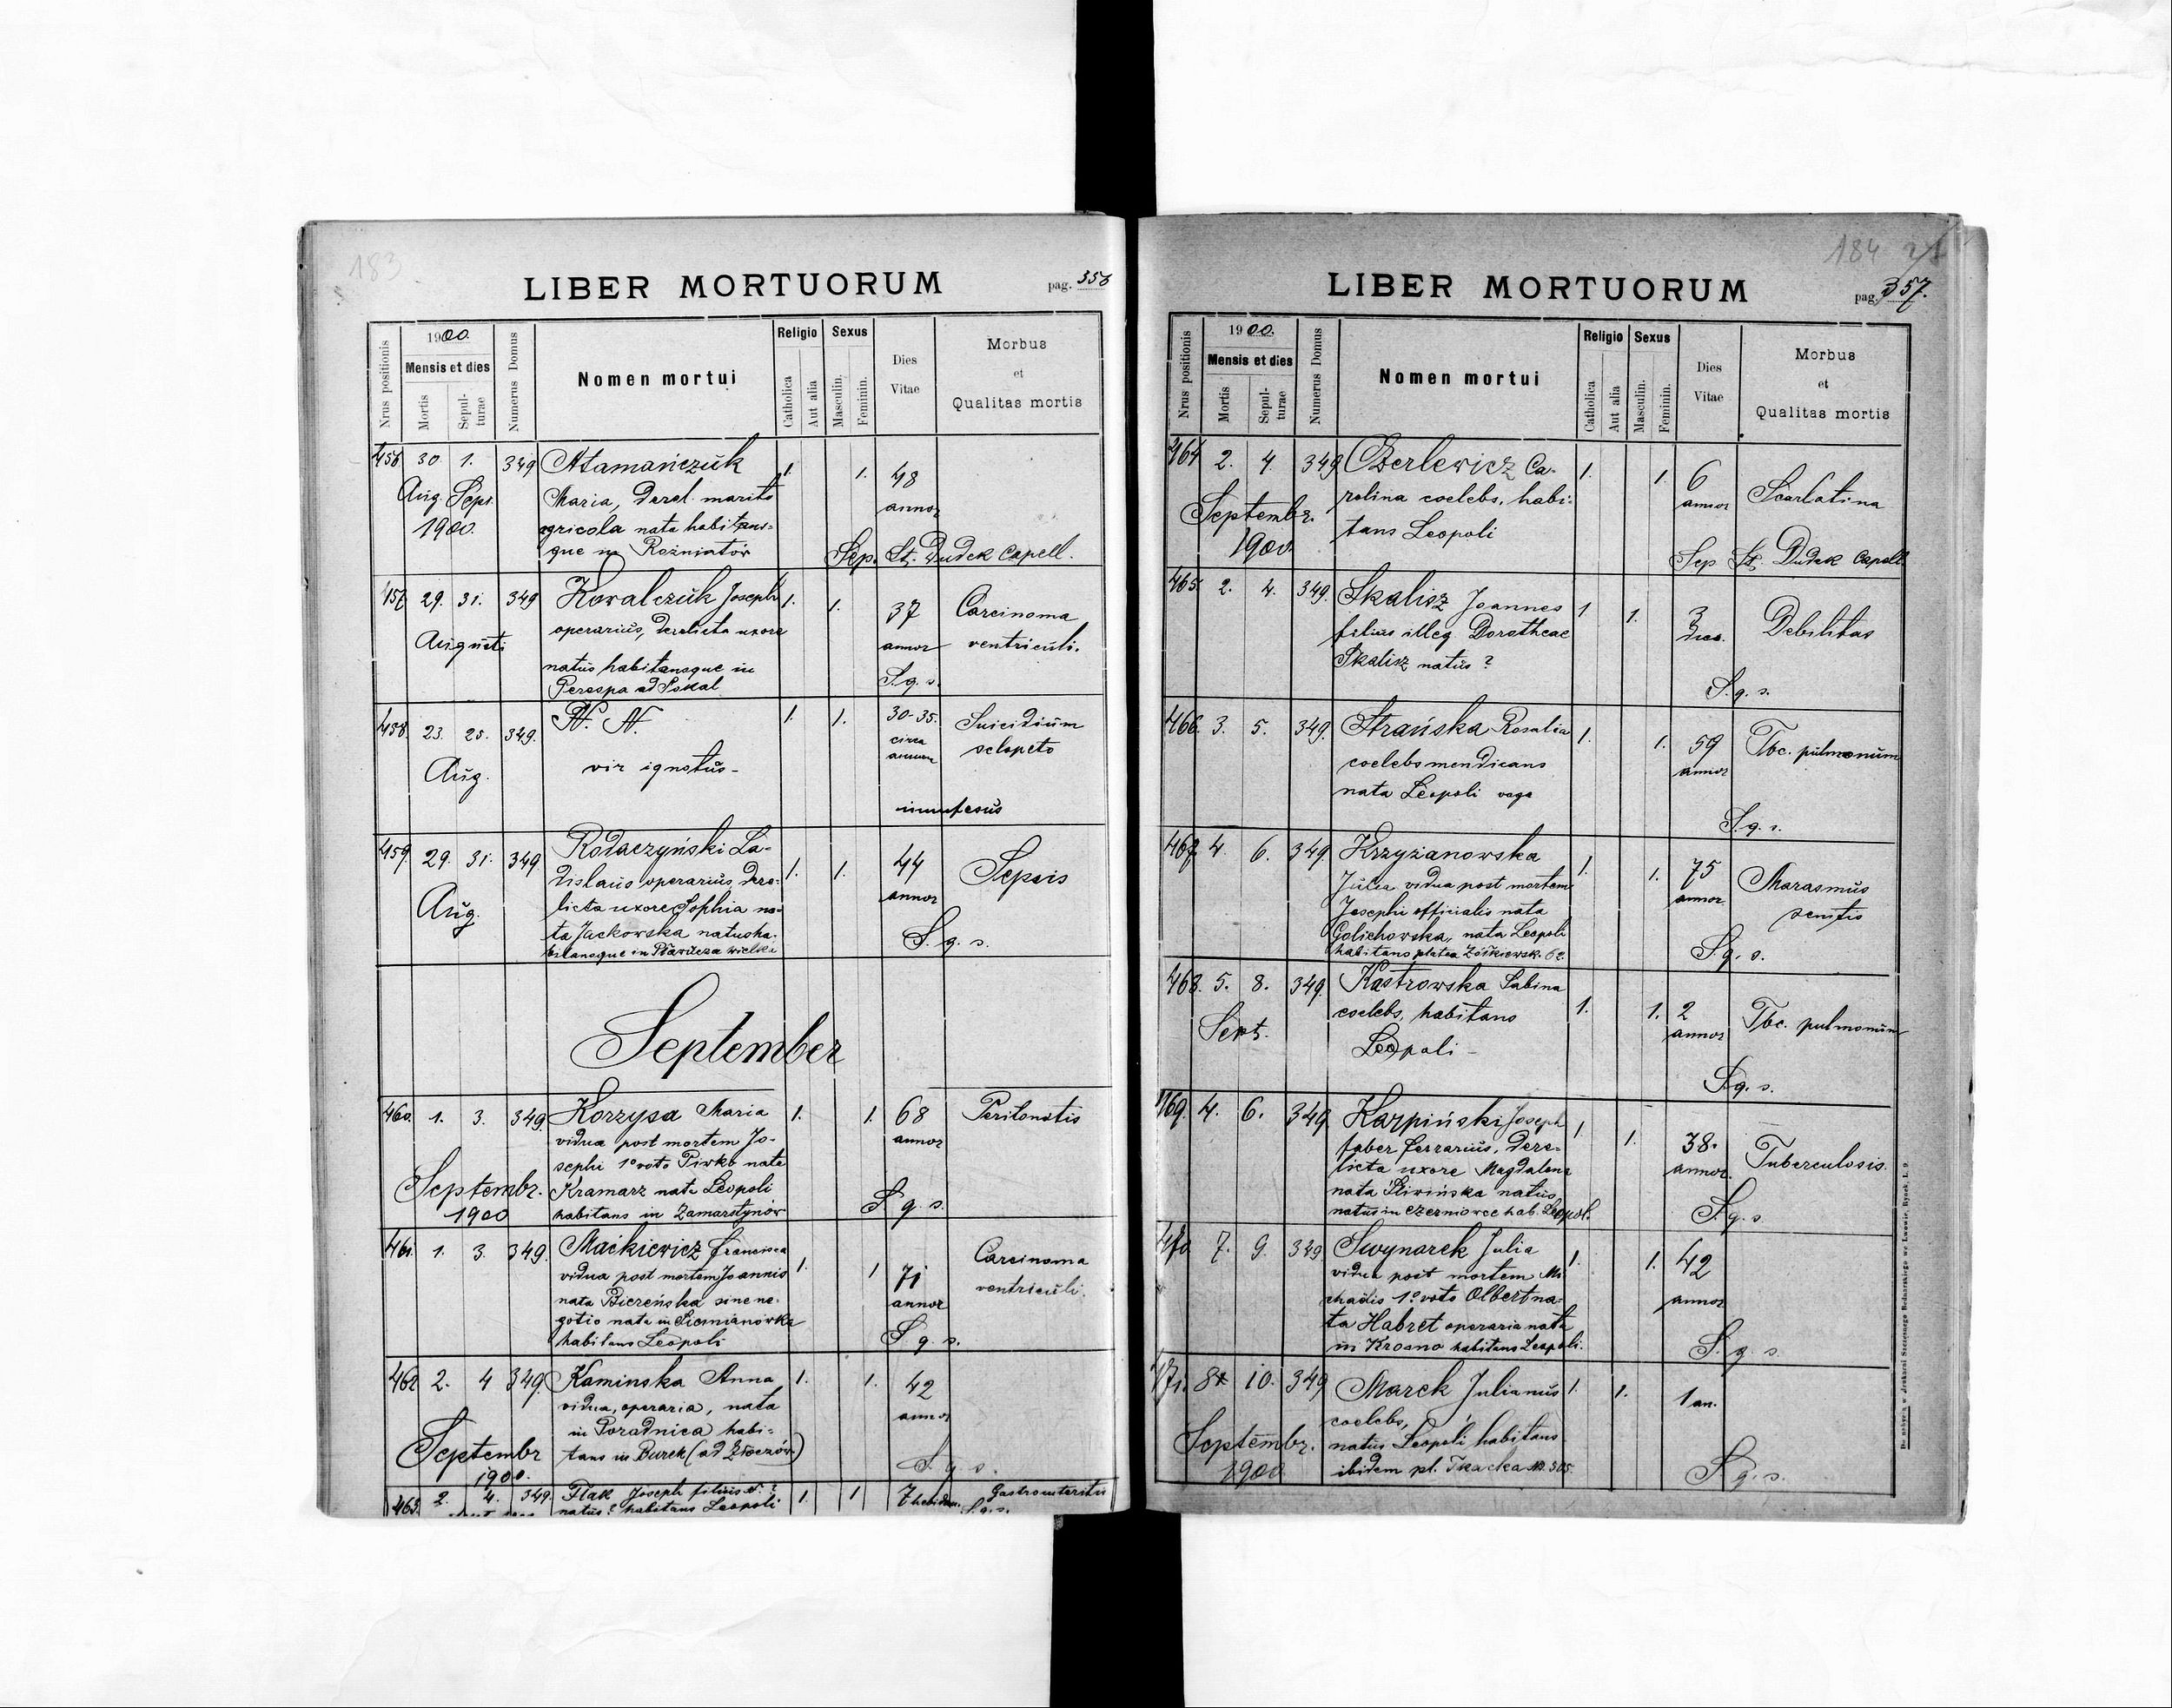 183
LIBER MORTUORUM
pag. 356
Nrus positionis
1900.
Mensis et dies
Mortis
Sepulturae
Numerus Domus
Nomen mortui
Religio
Catholica
Aut alia
Sexus
Masculin.
Feminin.
Dies
Vitae
Morbus
et
Qualitas mortis
456 30 1. 349 Atamańczuk 1. 1. 48
Aug. Sept. Maria, derel. marito annor
1900. agricola nata habitans=
que in Rożniatów Sep. St. Dudek Capell.
457 29. 31. 349 Kowalczuk Joseph 1. 1. 37 Carcinoma
Augusti operarius, derelicta uxore annor ventriculi.
natus habitansque in
Perespa ad Sokal S. q. s.
458 23. 25. 349. N. N. 1. 1. 30-35. Suicidium
Aug. vir ignotus- circa sclopeto
459 29. 31. 349 Rodaczyński La- 1. 1. 44 Sepsis
Aug. dislaus operarius, dere- annor
licta uxore Sophia na-
ta Jackowska natus ha-
bitansque in wielka S. q. s.
September
460. 1. 3. 349. Korzysa Maria 1. 1. 68 Peritonitis
vidua post mortem Jo- annor
sephi 1º voto Pirko nata
Septembr. Kramarz nata Leopoli
1900 habitans in Zamarstynów S. q. s.
461. 1. 3. 349. Maćkiewicz Francisca 1. 1 71 Carcinoma
vidua post mortem Joannis annor ventriculi.
nata Biereńska sine ne-
gotio nata in Siemianówka
habitans Leopoli S. q. s.
462 2. 4 349. Kaminska Anna 1. 1. 42
vidua, operaria, nata annor
Septembr in Poradnica habi-
1900. tans in Burek (ad Złoczów) S. q. s.
463. 2. 4. 349. Flak Joseph filius N. ? 1. 1 7 hebdom. Gastroenteritis
natus ? habitans Leopoli S. q. s.
184
LIBER MORTUORUM
pag. 357.
Nrus positionis
1900.
Mensis et dies
Mortis
Sepulturae
Numerus Domus
Nomen mortui
Religio
Catholica
Aut alia
Sexus
Masculin.
Feminin.
Dies
Vitae
Morbus
et
Qualitas mortis
464 2. 4. 349 Berlewicz Ca- 1. 1. 6 Scarlatina
Septembr. rolina coelebs, habi- annor
1900. tans Leopoli Sep St. Dudek Capell.
465. 2. 4. 349. Skalisz Joannes 1 1. 3 Debilitas
filius illeg Dorotheae dies.
Skalisz natus ? S. q. s.
466. 3. 5. 349. Strańska Rosalia 1. 1. 59 Tbc. pulmonum
coelebs mendicans annor
nata Leopoli vaga S. q. s.
467. 4. 6. 349 Krzyżanowska 1. 1. 75 Marasmus
Julia vidua post mortem annor. senilis
Josephi officialis nata
Golichowska, nata Leopoli
habitans platea Żółkiewsk. 62. S. q. s.
468. 5. 8. 349. Kostrowska Sabina 1. 1. 2 Tbc. pulmonum
Sept. coelebs, habitans annor
Leopoli - S. q. s.
469. 4. 6. 349 Karpiński Joseph 1. 1. 38. Tuberculosis.
faber ferrarius, dere- annor.
licta uxore Magdalena
nata Śliwińska natus
natus in Czerniowce hab. Leopol. S. q. s.
470 7. 9. 349 Swynarek Julia 1. 1. 42
vidua post mortem Mi annor
chaelis 1º voto Olbert na-
ta Habret operaria nata
in Krosno habitans Leopoli. S. q. s.
471. 8 10. 349 Marek Julianus 1. 1. 1 an.
coelebs,
Septembr. natus Leopoli habitans
1900 ibidem pl. Tkacka Nr. 305. S. q. s.